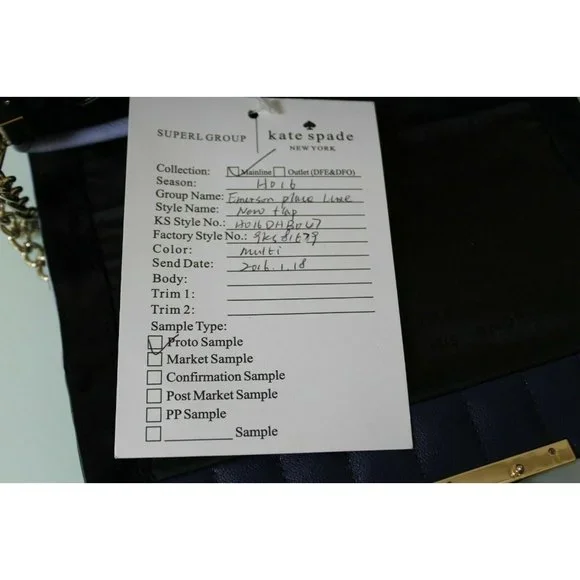 SUPERL GROUP
kate spade
NEW YORK
Collection: Mainline Outlet (DFE&DFO)
Season: HO16
Group Name: Emerson place Luxe
Style Name: New flap
KS Style No.: HO16DHB047
Factory Style No.:
Color: multi
Send Date: 2016.1.18
Body:
Trim 1:
Trim 2:
Sample Type:
Proto Sample
Market Sample
Confirmation Sample
Post Market Sample
PP Sample
Sample